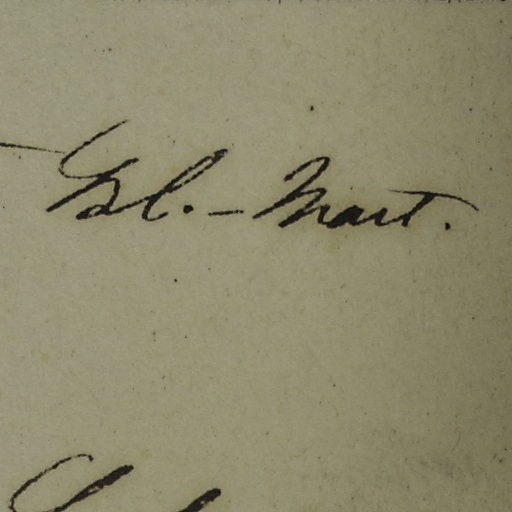 Gbl. - Mart.